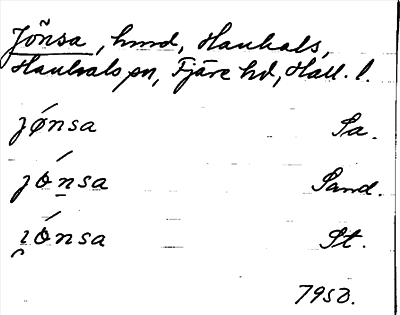 Jöñsa, hmd, Hanhals,
Hanhals sn, Fjäre hd, Hall. l.
jǿnsa Sa.
jó̱nsa Sand.
i̯ónsa St.
1950.